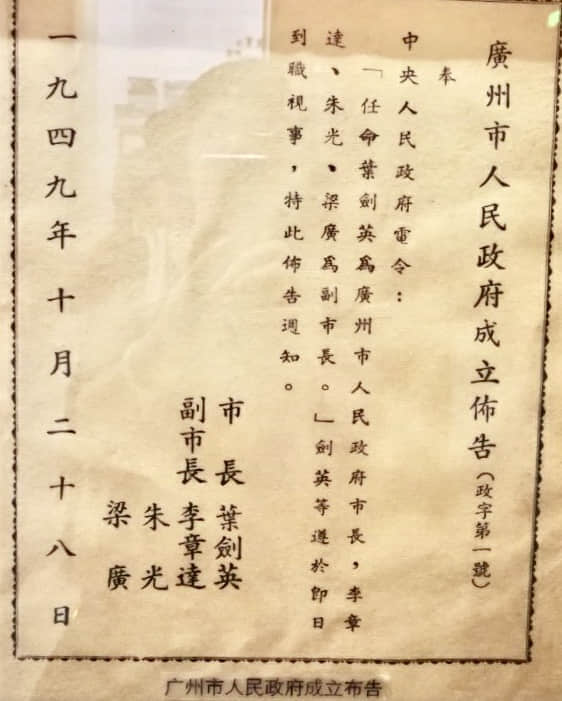 廣州市人民政府成立佈告(政字第一號)
奉
中央人民政府電令：
「任命葉劍英爲廣州市人民政府市長，李章
達、朱光、梁廣爲副市長。」劍英等遵於即日
到職視事，特此佈告週知。
市長 葉劍英
副市長 李章達
朱光
梁廣
一九四九年十月二十八日
广州市人民政府成立布告